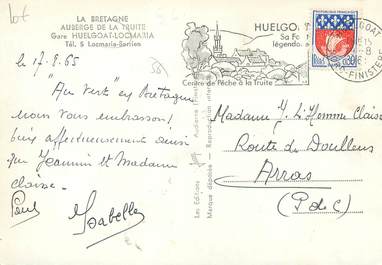 lot
LA BRETAGNE
AUBERGE DE LA TRUITE
Gare HUELGOAT-LOCMARIA
Tél. 5 Locmaria-Berrien
le 17-8-65
"Au vert" en Bretagne
nous vous embrassons!
bien affectueusement ainsi
que Jeannin et Madame
Claise.
Paul
Isabelle
HUELGOAT
Sa Fo
légenda
Centre de Pêche à la Truite
FINISTÈRE
0,30
Les Editions
Marque déposée
Reproduction
Madame J. L'Homme Claise
Route de Doullens
Arras
(P.de.C)